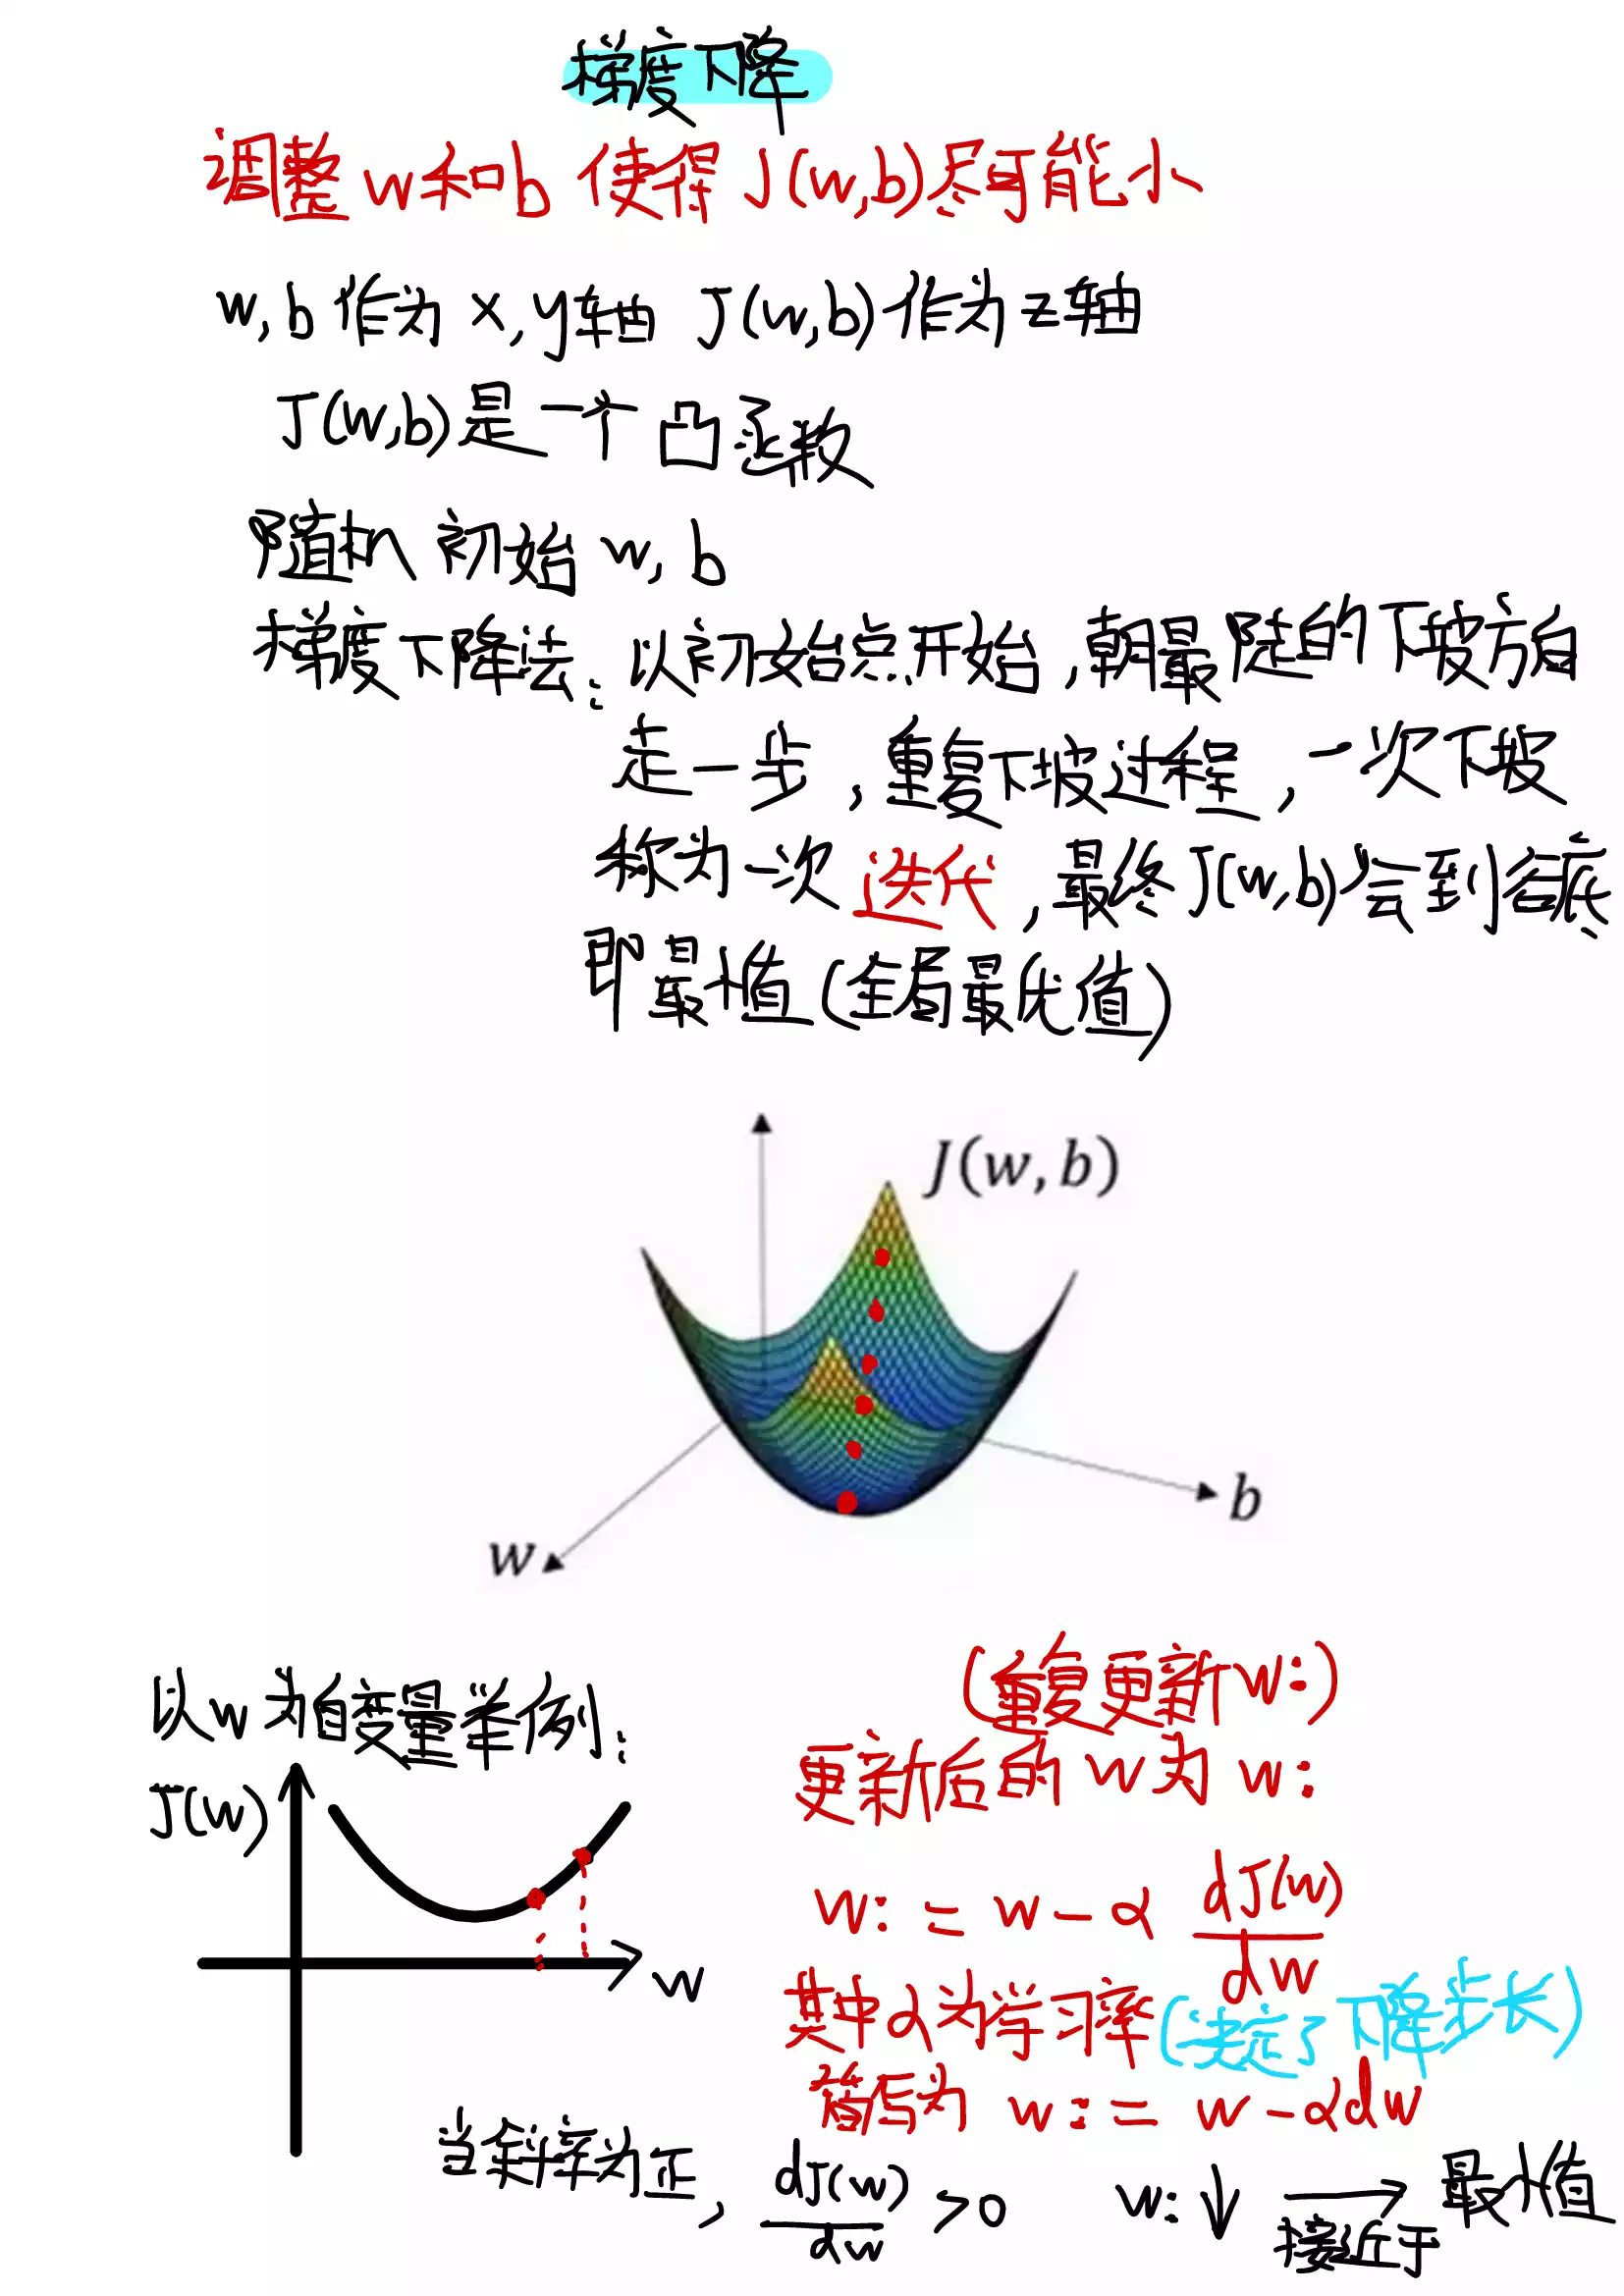 梯度下降
调整w和b 使得J(w,b)尽可能小
w,b作为x,y轴 J(w,b)作为z轴
J(w,b)是一个凸函数
随机初始w,b
梯度下降法:以初始点开始,朝最陡的下坡方向
走一步,重复下坡过程,一次下坡
称为一次迭代,最终J(w,b)会到谷底
即最小值(全局最优值)
J(w,b)
b
w
以w为自变量举例:
J(w)
w
(重复更新w:)
更新后的w为w:
w:=w-α dJ(w)/dw
其中α为学习率(决定了下降步长)
简写为 w:=w-αdw
当斜率为正, dJ(w)/dw >0 w:↓ → 最小值
接近于